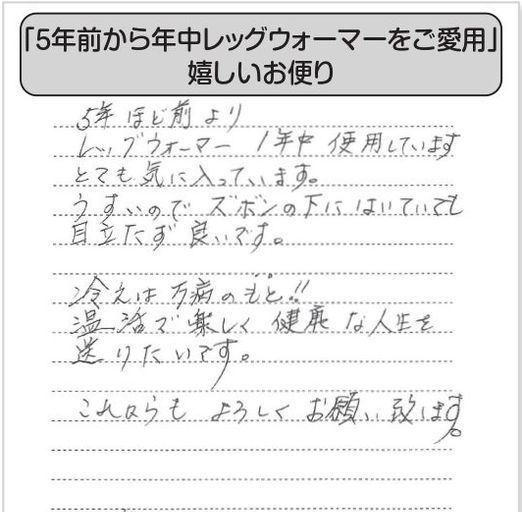 「5年前から年中レッグウォーマーをご愛用」
嬉しいお便り
5年ほど前より
レッグウォーマー1年中使用しています
とても気に入っています。
うすいのでズボンの下にはいていても
目立たず良いです。
冷えは万病のもと!!
温活で楽しく健康な人生を
送りたいです。
これからもよろしくお願い致します。